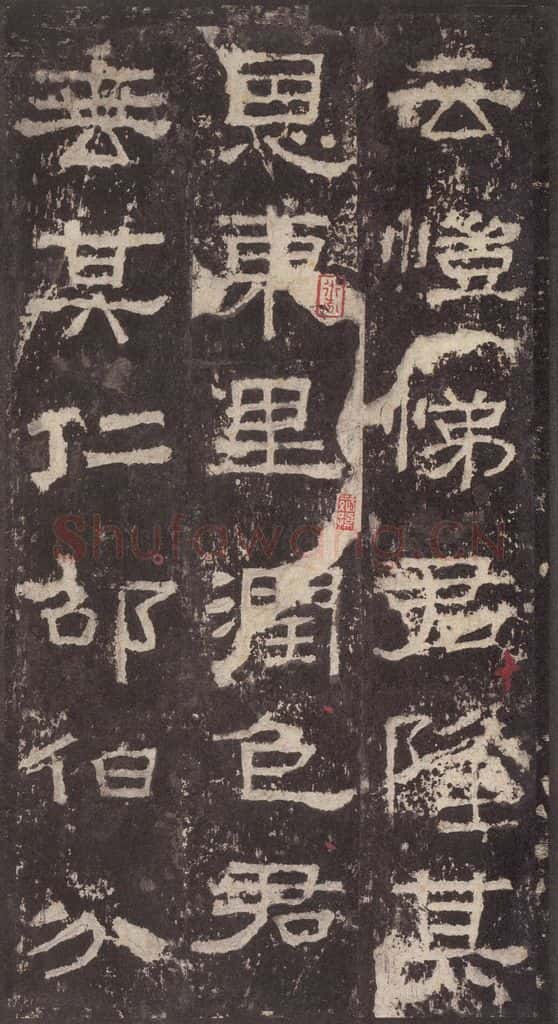 云愷悌君隆其
恩東里潤色君
垂其仁邵伯分
Shufawang.CN